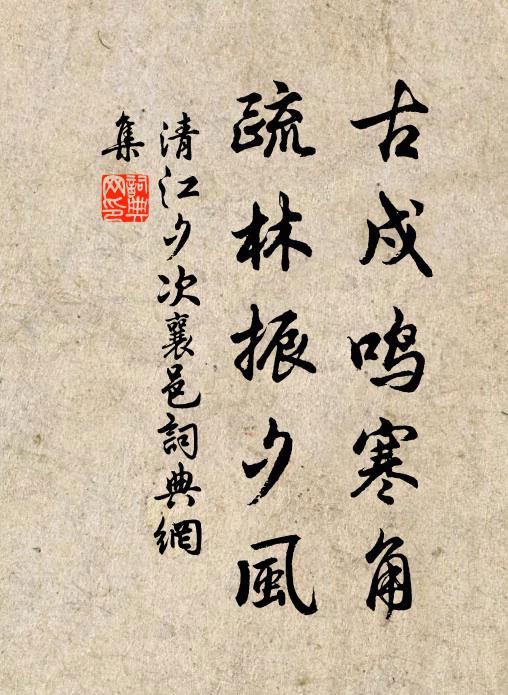 古戍鸣寒角
疏林振夕風
清江夕次襄邑詞典網
集
詞典网印